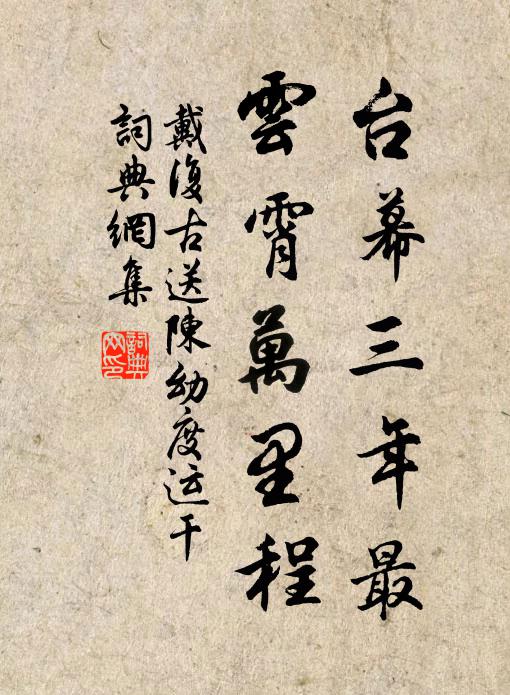 台幕三年最
雲霄萬里程
戴復古送陳幼度运干
詞典網集
詞典
网印